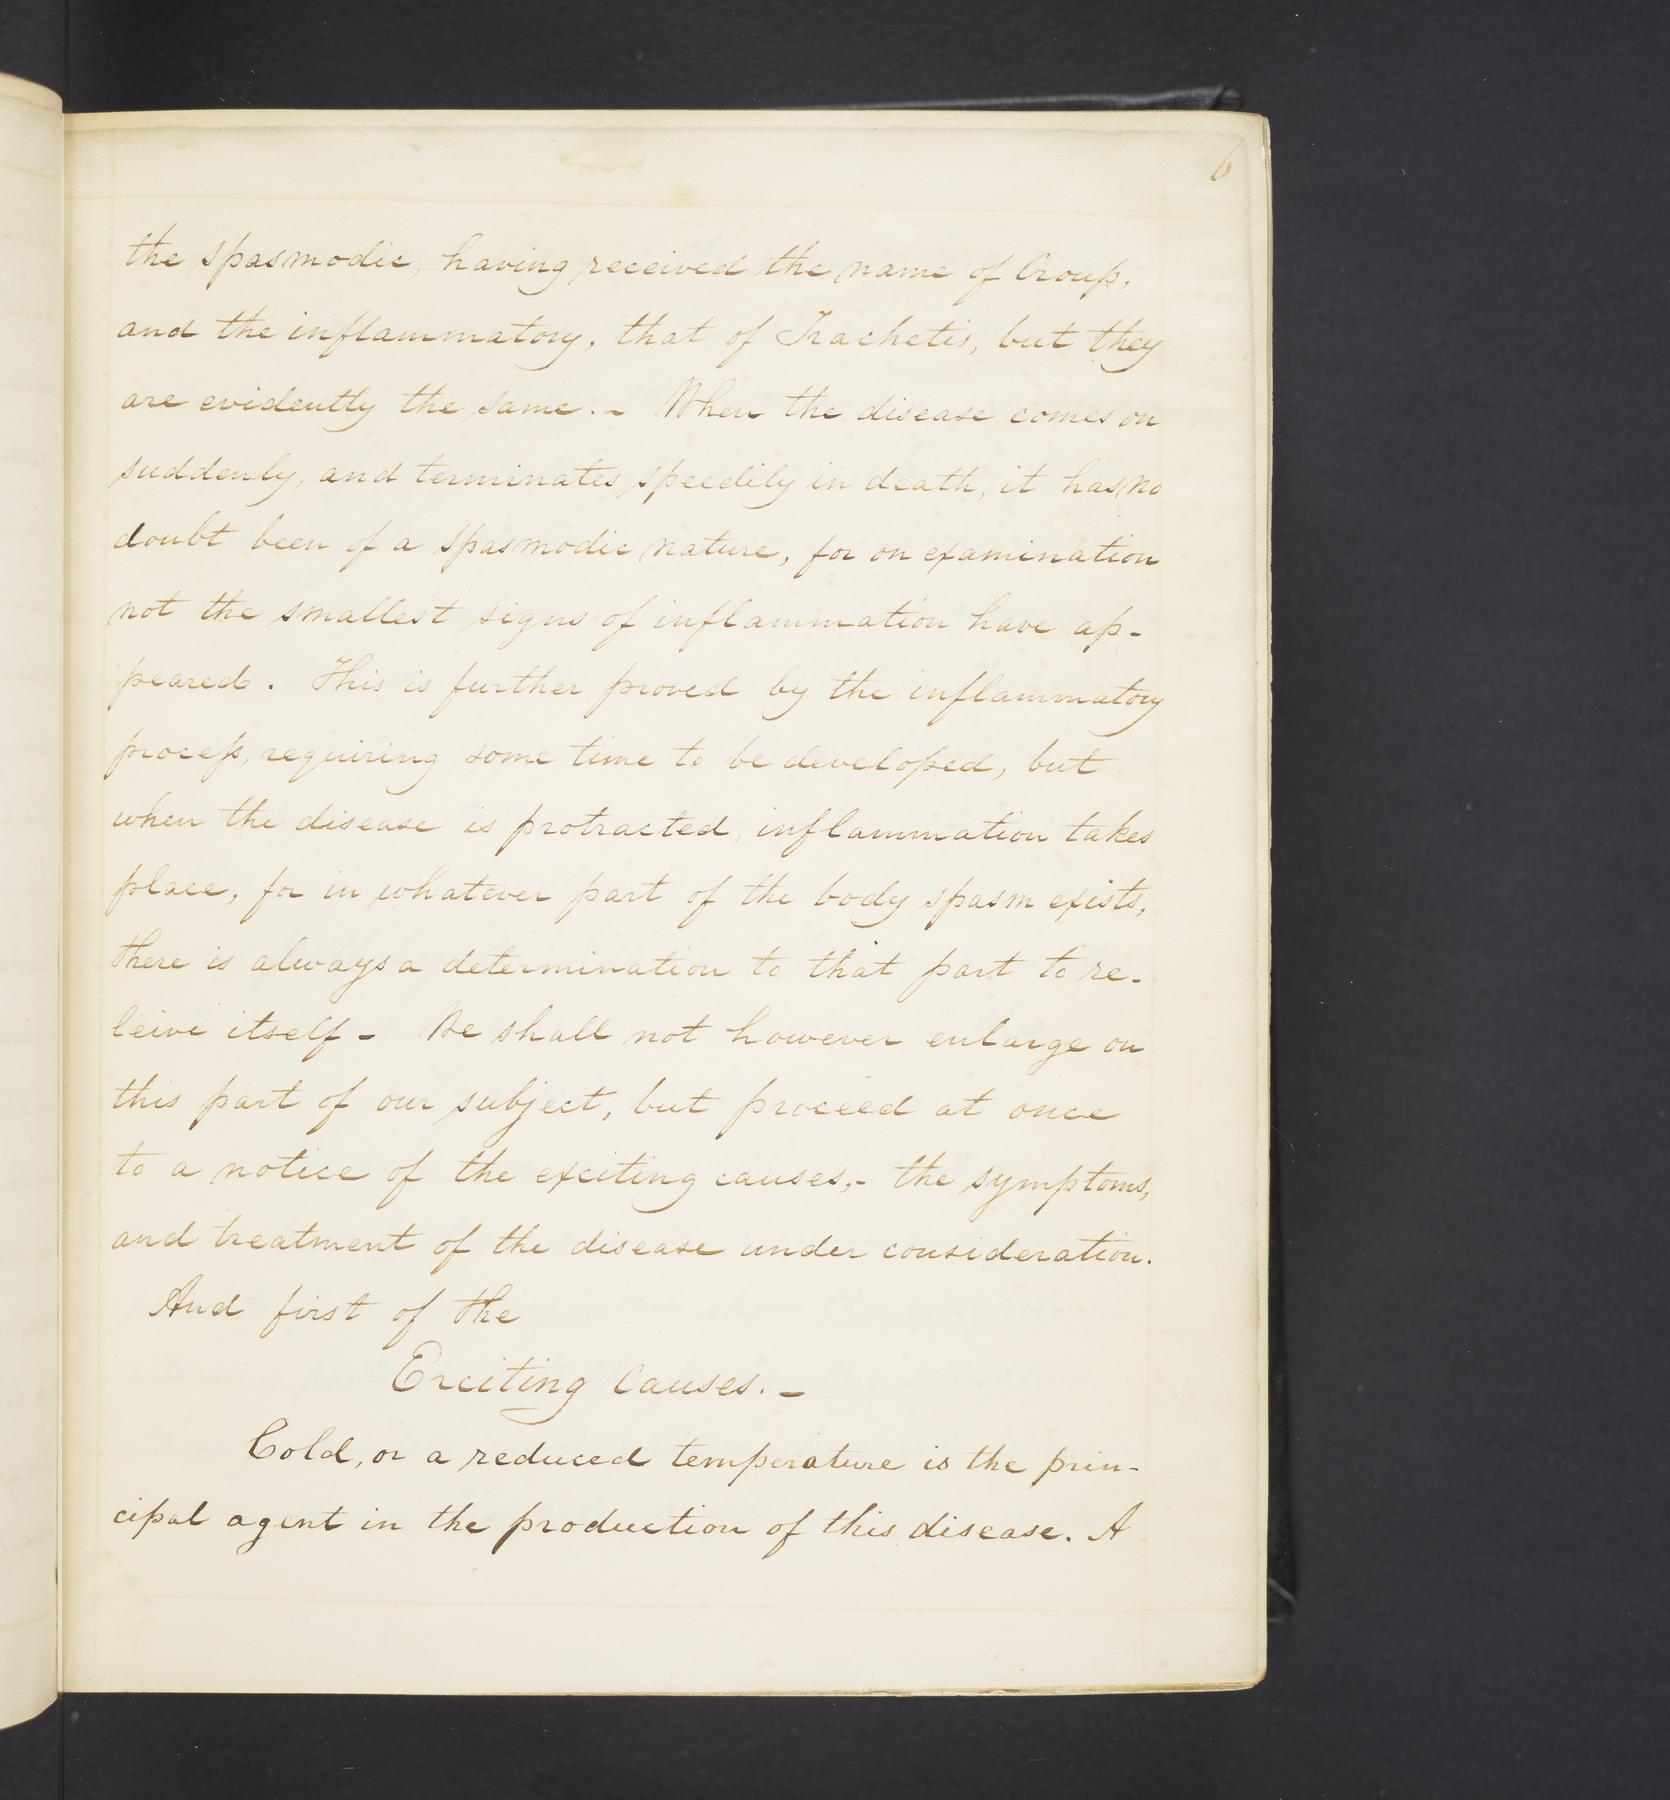 6
the spasmodic, having received the name of Croup,
and the inflammatory, that of Trachetis, but they
are evidently the same. - When the disease comes on
suddenly, and terminates speedily in death, it has no
doubt been of a spasmodic nature, for on examination
not the smallest signs of inflammation have ap-
peared. This is further proved by the inflammatory
process, requiring some time to be developed, but
when the disease is protracted, inflammation takes
place, for in whatever part of the body spasm exists,
there is always a determination to that part to re-
leive itself - We shall not however enlarge on
this part of our subject, but proceed at once
to a notice of the exciting causes,- the symptoms,
and treatment of the disease under consideration.
And first of the
Exciting Causes. -
Cold, or a reduced temperature is the prin-
cipal agent in the production of this disease. A